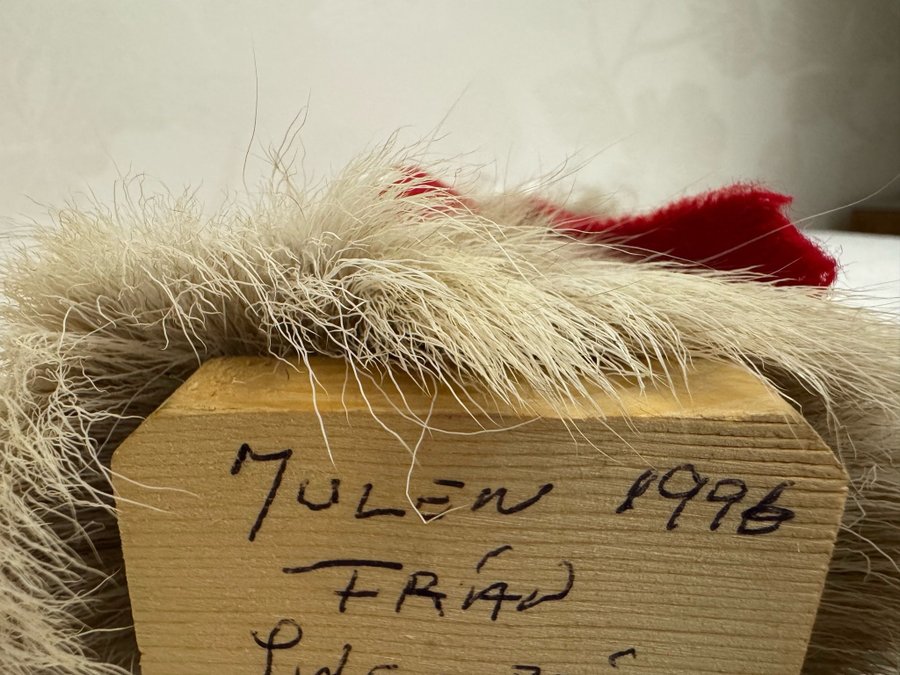 JULEN 1996
FRÅN